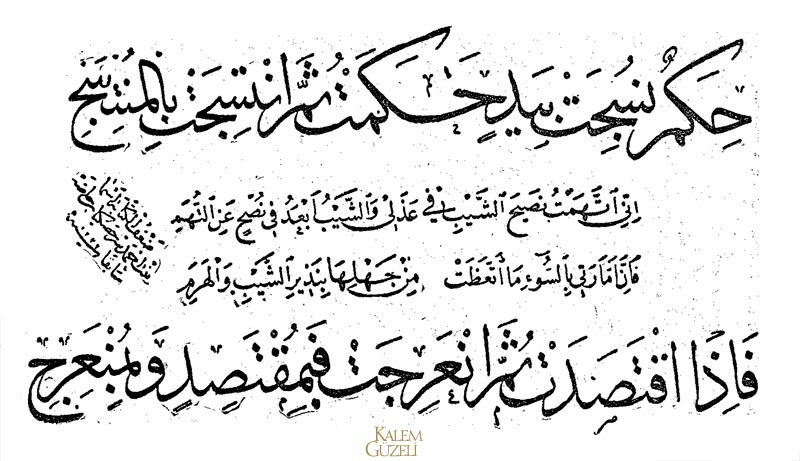 حِكَمٌ نُسِجَتْ بِيَدٍ حَكَمَتْ ثُمَّ انْتَسَجَتْ بِالْمُنْتَسِجِ
اِنِّي اتَّهَمْتُ نَصِيحَ الشَّيْبِ فِي عَذَلِي وَالشَّيْبُ اَبْعَدُ فِي نُصْحٍ عَنِ التُّهَمِ
فَاِنَّ اَمَّارَتِي بِالسُّوءِ مَا اتَّعَظَتْ مِنْ جَهْلِهَا بِنَذِيرِ الشَّيْبِ وَالْهَرَمِ
فَاِذَا اقْتَصَدَتْ ثُمَّ انْعَرَجَتْ فَبِمُقْتَصِدٍ وَبِمُنْعَرِجِ
KALEM
GÜZELİ